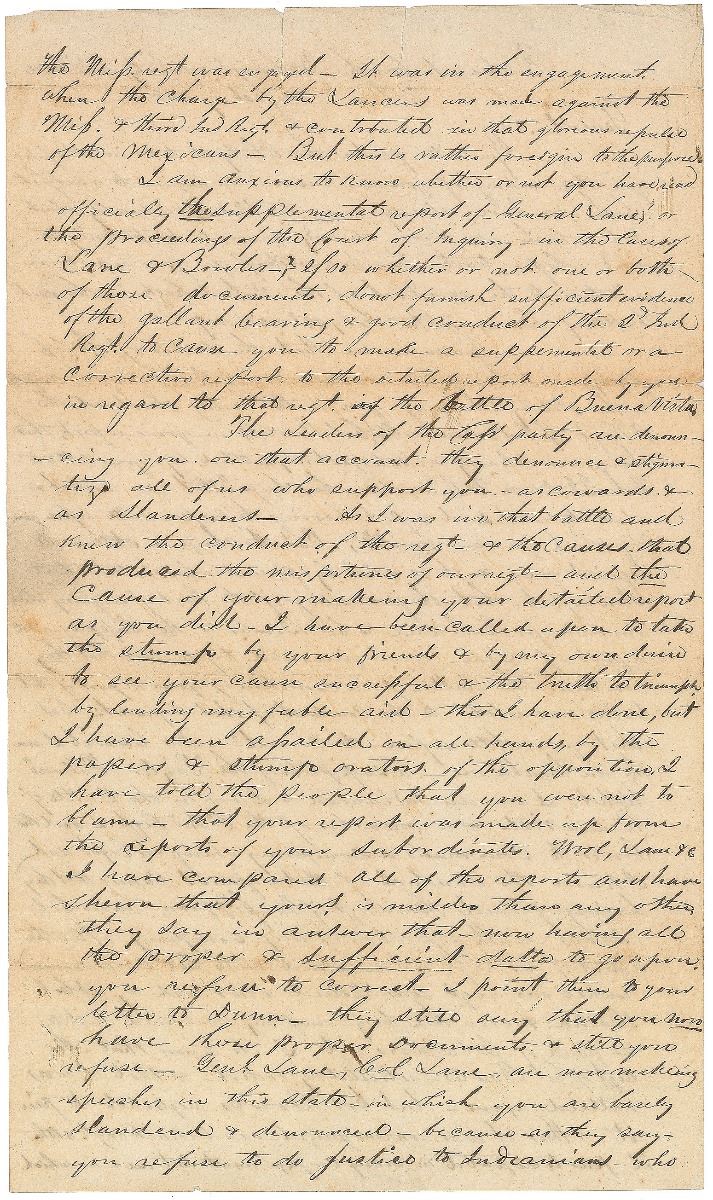 the Miss regt was engaged – It was in the engagement
when the Charge by the Lancers was made against the
Miss. & third Ind Regt. & contributed in that glorious repulse
of the Mexicans – But this is rather foreign to the purpose.
I am anxious to know whether or not you have read
officially the supplemental report of General Lane, or
the proceedings of the Court of Inquiry in the Cases of
Lane & Bowles –, If so whether or not one or both
of those documents, do not furnish sufficient evidence
of the gallant bearing & good conduct of the 2d Ind
Regt. to Cause you to make a suppemental or a
Corrective report. to the detailed report made by you
in regard to that regt. of the battle of Buena Vista,
The Leaders of the Cass party are denoun-
-cing you on that account. they denounce & stigma-
tize all of us who support you – as cowards &
as Slanderers – As I was in that battle and
knew the conduct of the regt – & the Causes that
produced the misfortunes of our regt – and the
Cause of your making your detailed report
as you did – I have been called upon to take
the stump by your friends & by my own desire
to see your cause successful & the truth to triumph
by lending my feble aid – this I have done, but
I have been assailed on all hands, by the
papers & stump orators of the opposition, I
have told the people that you were not to
blame – that your report was made up from
the reports of your subordinates. Wool, Lane &c
I have compared all of the reports and have
shewn that yours is milder than any other
they say in answer that – now having all
the proper & sufficient datta to go upon
you refuse to correct – I point them to your
letter to Dunn – they still say that you now
have those proper documents & still you
refuse – Genl Lane, Col Lane are now making
speeches in this state – in which you are basely
slandered & denounced – because as they say –
you refuse to do justice to Indianians who